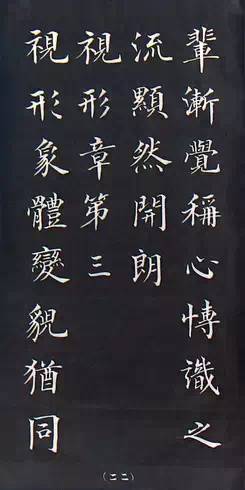 輩漸覺稱心博識之
流顯然開朗
視形章第三
視形象體變貌猶同
(二二)